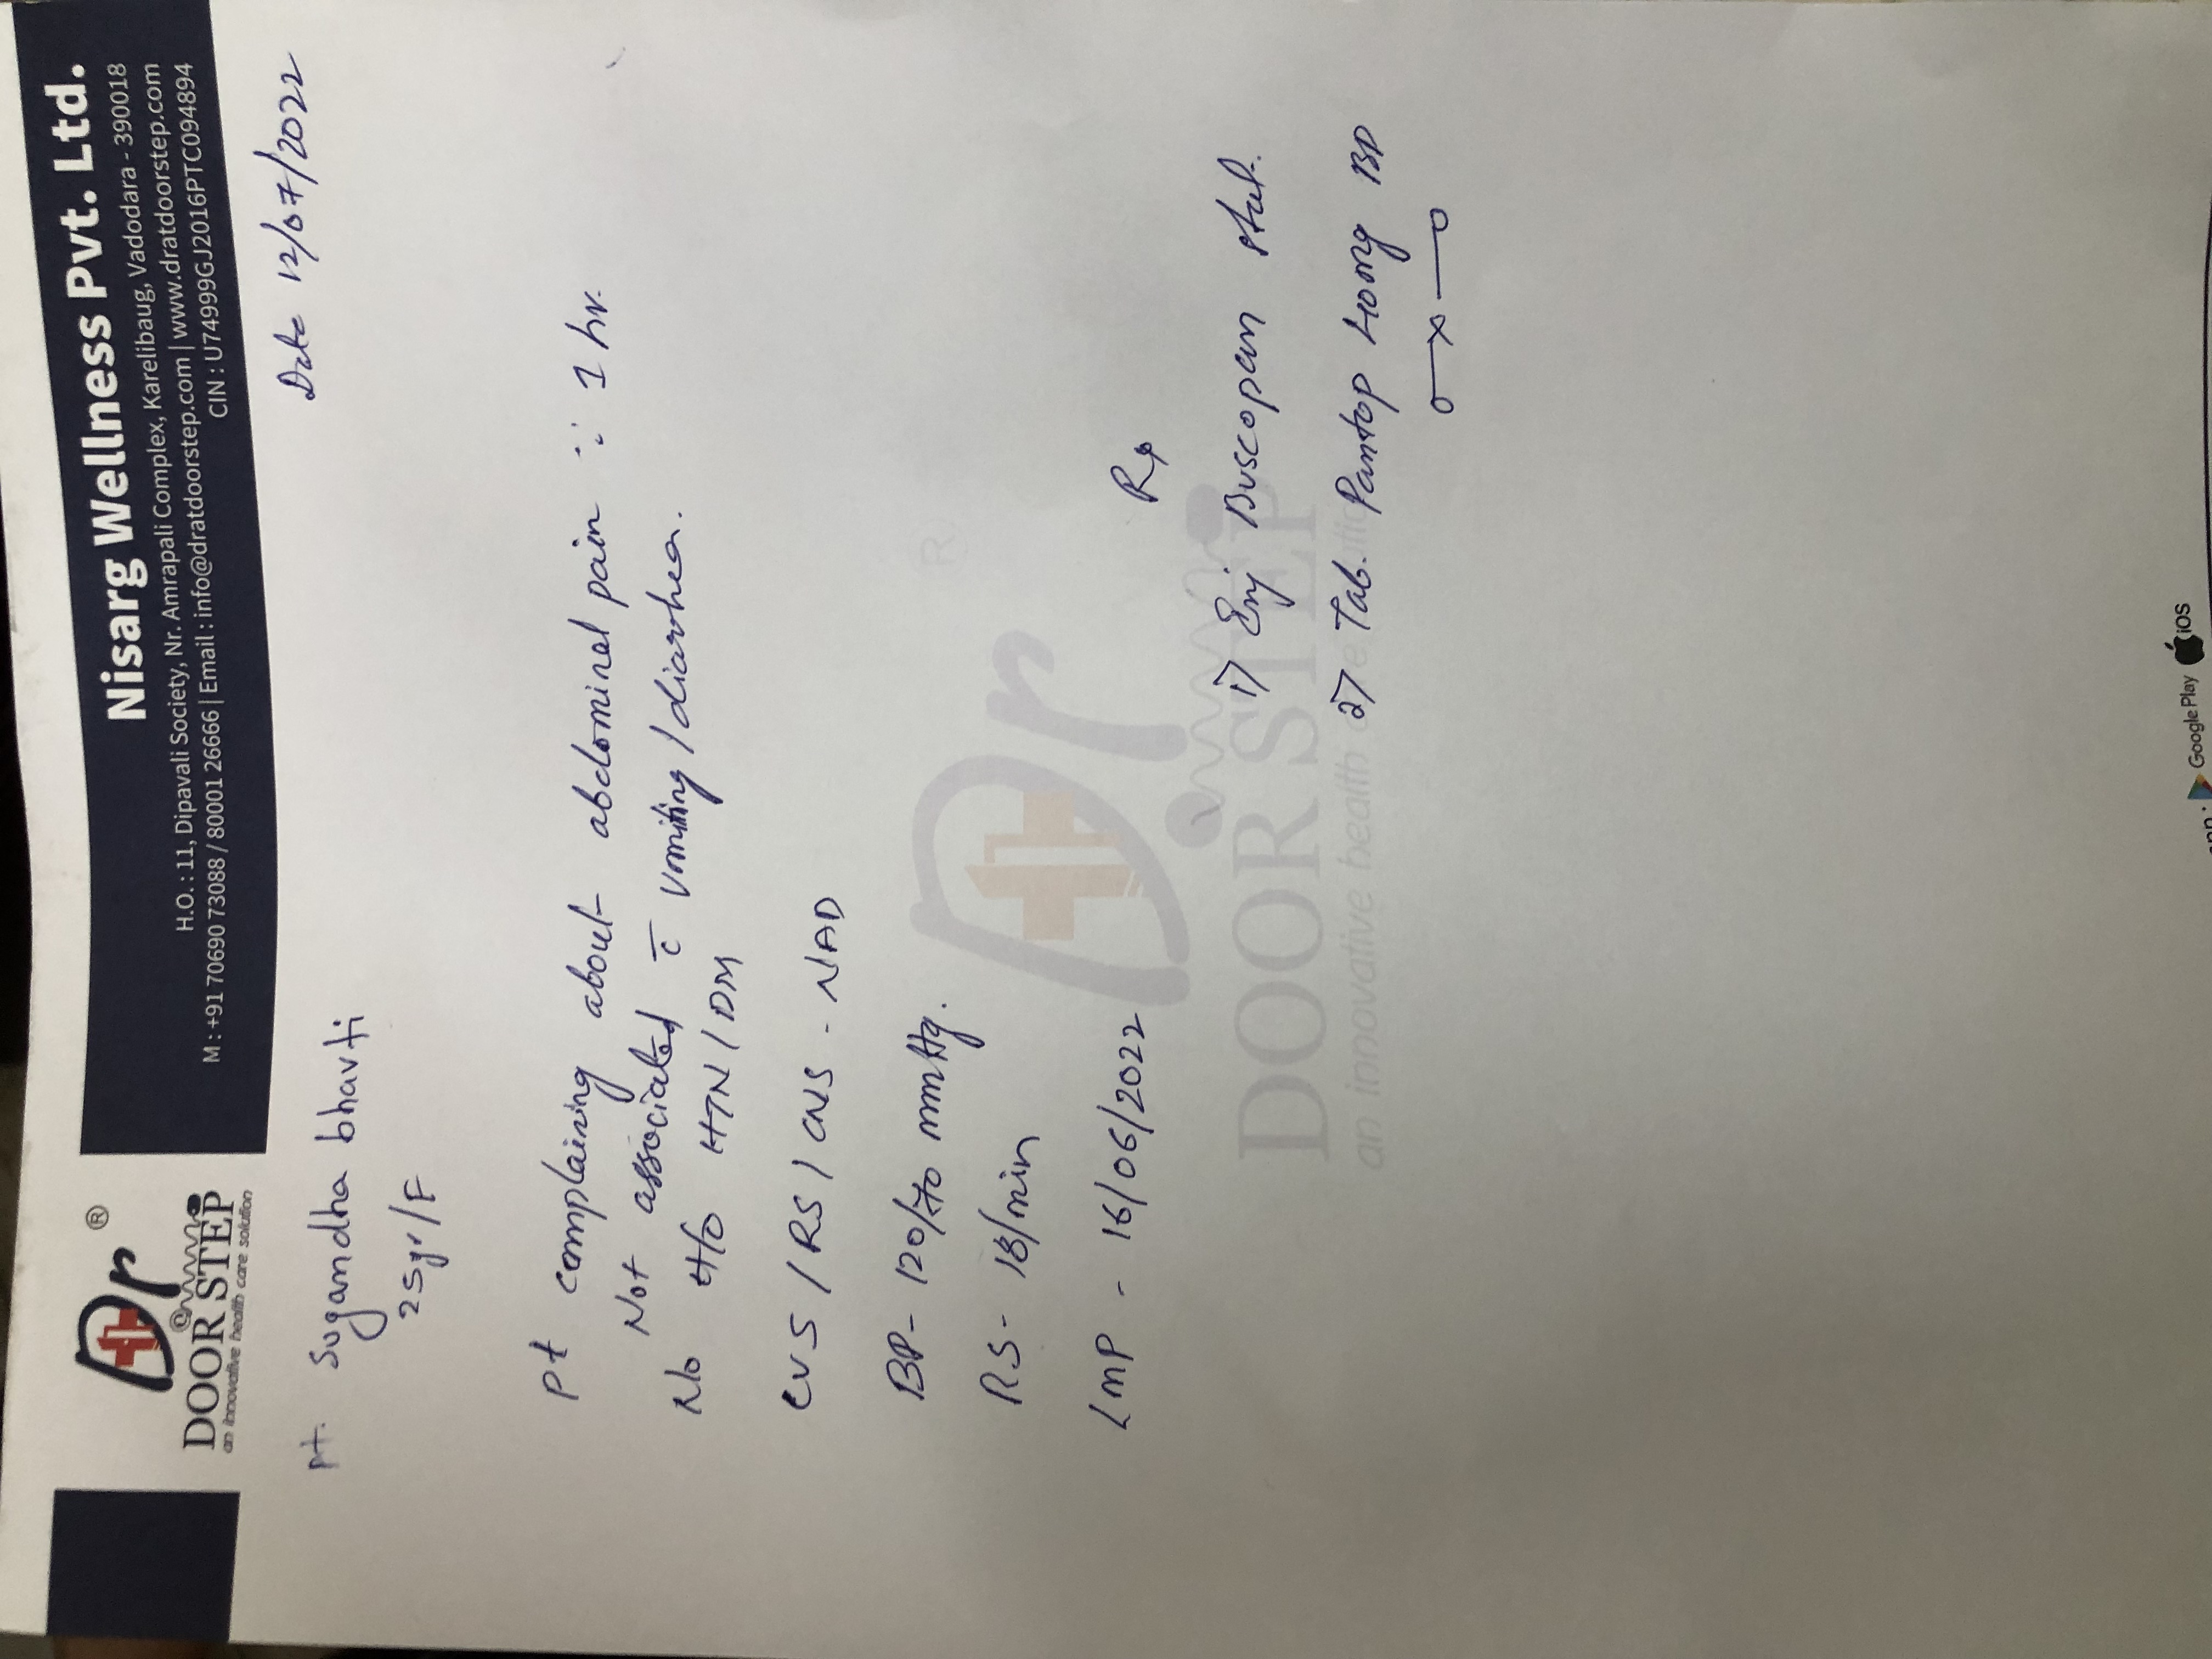 Dr ®
@
DOOR STEP
an innovative health care solution
Nisarg Wellness Pvt. Ltd.
H.O. : 11, Dipavali Society, Nr. Amrapali Complex, Karelibaug, Vadodara - 390018
M : +91 70690 73088 / 80001 26666 | Email : info@dratdoorstep.com | www.dratdoorstep.com
CIN : U74999GJ2016PTC094894
Date 12/07/2022
pt. Sugandha bharti
25yr/F
pt complaining about abdominal pain ∵ 1 hr.
Not associated c̄ vomiting / diarrhea.
N/o H/o HTN / DM
CVS / RS / CNS - NAD
BP- 120/70 mmHg.
RS- 18/min
LMP - 16/06/2022
Rx
1) Inj Buscopan stat.
2) Tab. Pantop 40mg BD
o—x—o
Dr ®
DOOR STEP
an innovative health care solution
Google Play iOS